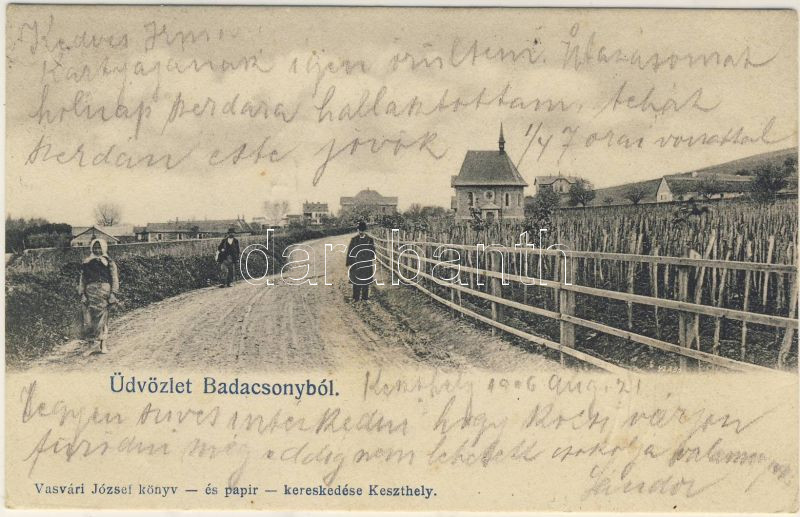 Kedves Irma
Kártyájának igen örültem. Utazásomat
holnap szerdára halasztottam, tehát
szerdán este jövök 1/4 7 órai vonattal
darabanth
Üdvözlet Badacsonyból.
Keszthely 1906 Aug. 21
Legyen szíves intézkedni hogy kocsi várjon
fürödni még eddig nem lehetett csókolja
Sándor
Vasvári József könyv — és papir — kereskedése Keszthely.